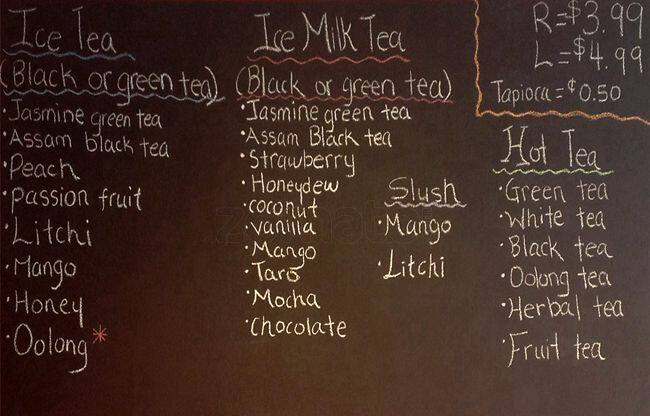 Ice Tea
(Black or green tea)
· Jasmine green tea
· Assam black tea
· Peach
· passion fruit
· Litchi
· Mango
· Honey
· Oolong *
Ice Milk Tea
(Black or green tea)
· Jasmine green tea
· Assam Black tea
· Strawberry
· Honeydew
· coconut
· vanilla
· Mango
· Taro
· Mocha
· Chocolate
Slush
· Mango
· Litchi
R=$3.99
L=$4.99
Tapioca=¢0.50
Hot Tea
· Green tea
· White tea
· Black tea
· Oolong tea
· Herbal tea
· Fruit tea